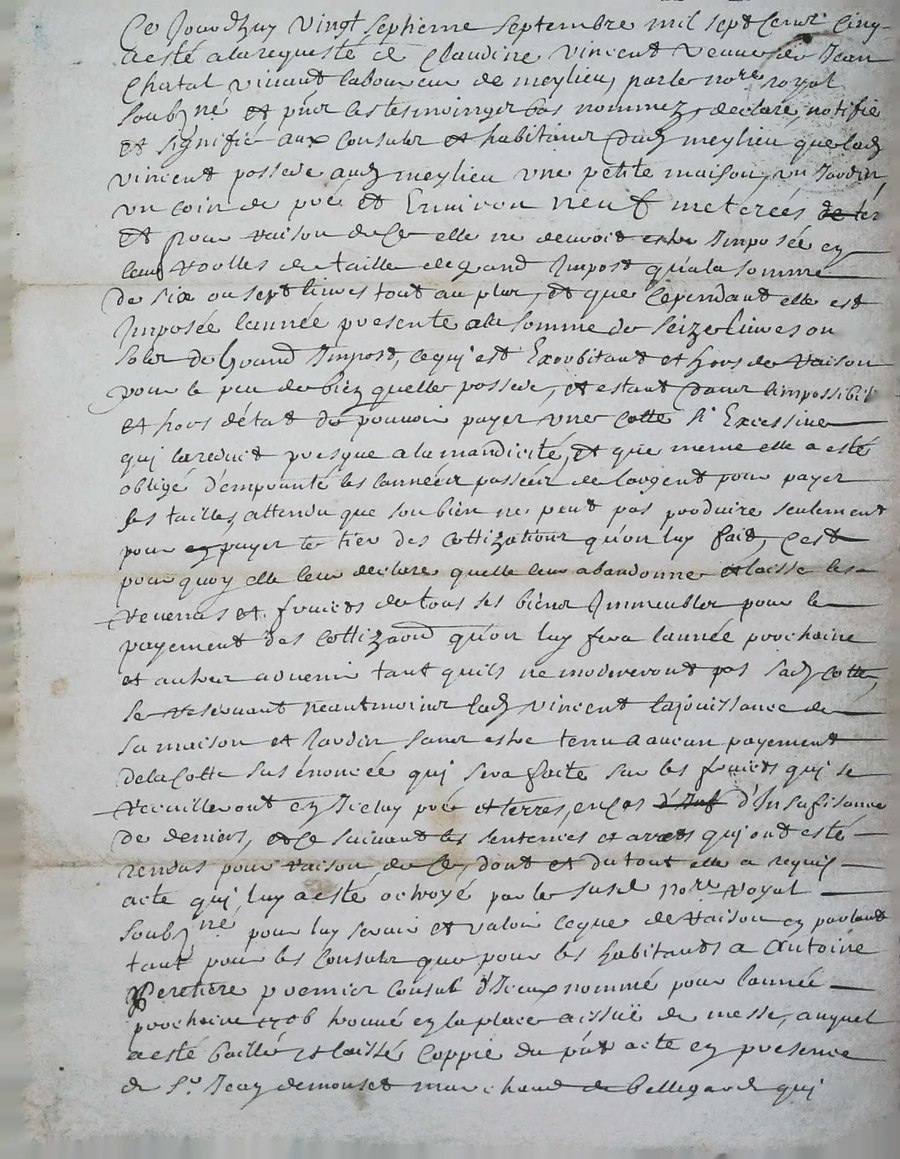 Ce Jourdhuy vingt septieme septembre mil sept cent cinq
a esté a la requeste de Claudine vincent veuve de Jean
Chatal vivant laboureur de meylieu, par le no.re royal
soubz.né et p̃nt les tesmoingz bas nommez, declaré, notifié
et signifié aux Consulz et habitans dud meylieu que lad
vincent possede aud meylieu une petite maison, un Jardin,
un coin de pré et Environ neuf meterées de ter
et pour raison de Ce elle ne devroit estre Imposée en
leurs roolles de taille de grand Impost qu'a la somme
de six ou sept livres tout au plus, et que Cependant elle est
Imposée l'année presente a la somme de seize livres ou
solz de Grand Impost, ce qui est Exorbitant et hors de raison
pour le peu de bien quelle possede, et estant dans l'impossibi
et hors d'état de pouvoir payer une Cotte si Excessive
qui la reduit presque a la mandicité, et que meme elle a esté
obligé d'emprunté les années passées de l'argent pour payer
ses tailles, attendu que son bien ne peut pas produire seulement
pour en payer le tier des Cottizations qu'on luy fait, C'est
pourquoy elle leur declare quelle leur abandonne et laisse les
revenus et fruicts de tous ses biens Immeubles pour le
payement des Cottizaõns qu'on luy fera l'année prochaine
et autres advenir tant quils ne modereront pas sad Cotte,
se reservant neantmoins lad vincent la jouissance de
sa maison et Jardin sans estre tenu a aucun payement
de la Cotte sus énoncée qui sera faite sur les fruicts qui se
recueilleront en Iceluy pré et terres, en Cas d'Inf d'Insufisance
de deniers, et Ce suivant les sentences et arrets qui ont esté
rendus pour raison de Ce, dont et du tout elle a requis
acte qui luy a esté octroyé par le susd no.re royal
soubz.né pour luy servir et valoir ce que de raison en parlant
tant pour les Consulz que pour les habitants a Antoine
Peretiere premier Consul d'Iceux nommé pour l'année
prochaine 1706 trouvé en la place a issuë de messe, auquel
a esté baillé et laissé Coppie du p̃nt acte en presence
de S.r Jean demouset marchand de Bellegarde qui